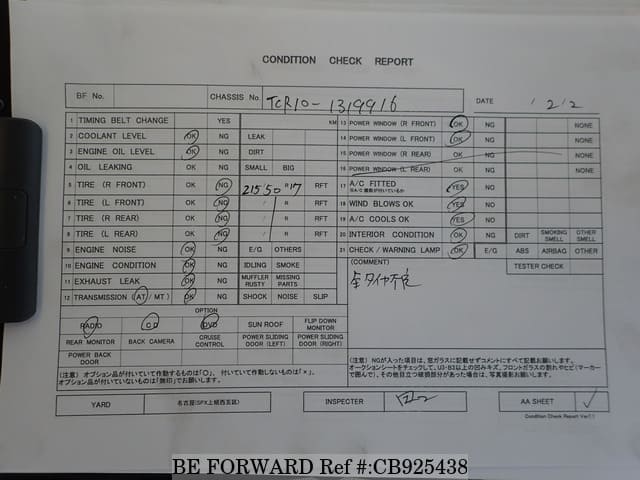 CONDITION CHECK REPORT
BF No. CHASSIS No. TCR10-1319916 DATE / 2/2
1 TIMING BELT CHANGE YES KM
2 COOLANT LEVEL OK NG LEAK
3 ENGINE OIL LEVEL OK NG DIRT
4 OIL LEAKING OK NG SMALL BIG
5 TIRE (R FRONT) OK NG 215 50 R17 RFT
6 TIRE (L FRONT) OK NG / R RFT
7 TIRE (R REAR) OK NG / R RFT
8 TIRE (L REAR) OK NG / R RFT
9 ENGINE NOISE OK NG E/G OTHERS
10 ENGINE CONDITION OK NG IDLING SMOKE
11 EXHAUST LEAK OK NG MUFFLER RUSTY MISSING PARTS
12 TRANSMISSION (AT/MT) OK NG SHOCK NOISE SLIP
13 POWER WINDOW (R FRONT) OK NG NONE
14 POWER WINDOW (L FRONT) OK NG NONE
15 POWER WINDOW (R REAR) OK NG NONE
16 POWER WINDOW (L REAR) OK NG NONE
17 A/C FITTED YES NO
18 WIND BLOWS OK YES NO
19 A/C COOLS OK YES NO
20 INTERIOR CONDITION OK NG DIRT SMOKING SMELL OTHER SMELL
21 CHECK / WARNING LAMP OK E/G ABS AIRBAG OTHER
(COMMENT) TESTER CHECK
全タイヤ不良
OPTION
RADIO CD DVD SUN ROOF FLIP DOWN MONITOR
REAR MONITOR BACK CAMERA CRUISE CONTROL POWER SLIDING DOOR (LEFT) POWER SLIDING DOOR (RIGHT)
POWER BACK DOOR
(注意) オプション品が付いていて作動するものは「○」、付いていて作動しないものは「×」、
オプション品が付いていないものは「無印」でお願いします。
(注意) NGが入った項目は、窓ガラスに記載せずコメントにすべて記載お願いします。
オークションシートをチェックして、U3・B3以上の凹みキズ、フロントガラスの割れやヒビ(マーカー
で囲んで)、その他目立つ破損部分があった場合は、写真撮影お願いします。
YARD 名古屋 INSPECTER AA SHEET ✓
Condition Check Report Ver
BE FORWARD Ref #:CB925438